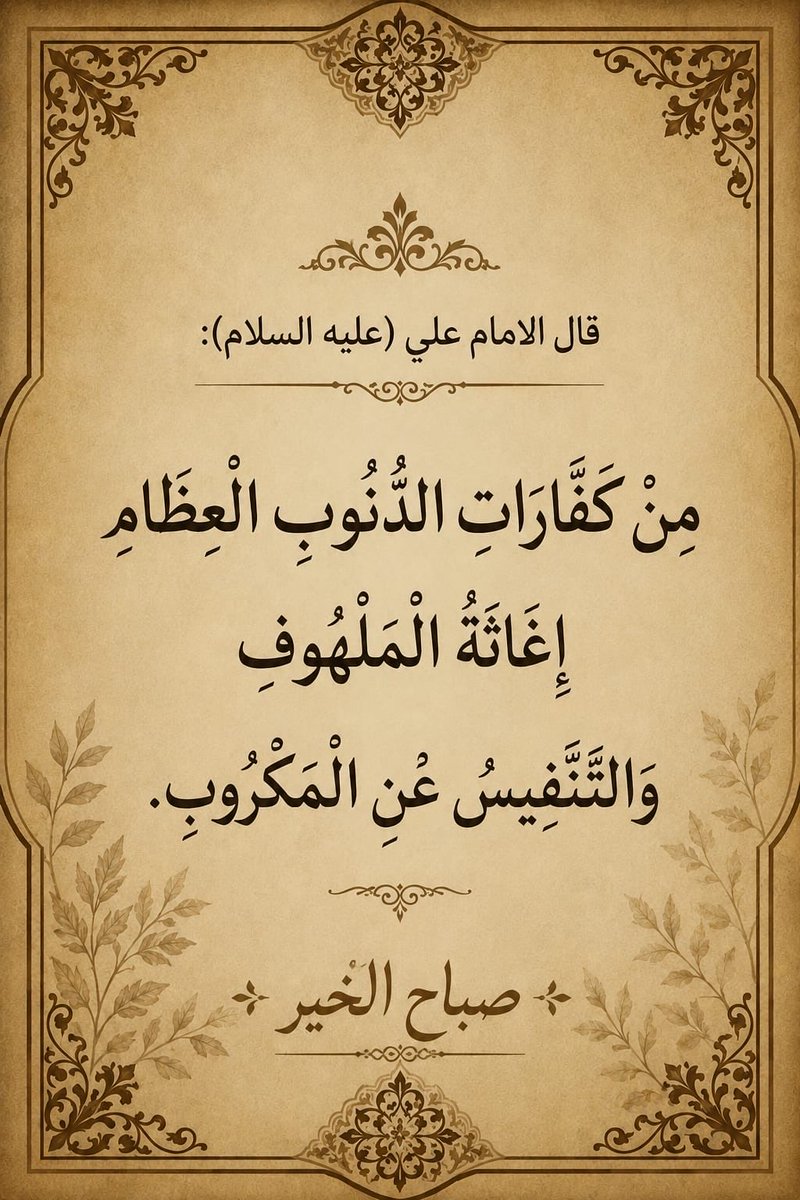 قال الامام علي (عليه السلام):
مِنْ كَفَّارَاتِ الدُّنُوبِ الْعِظَامِ
إِغَاثَةُ الْمَلْهُوفِ
وَالتَّنَّفِيسُ عْنِ الْمَكْرُوبِ.
صباح الخير